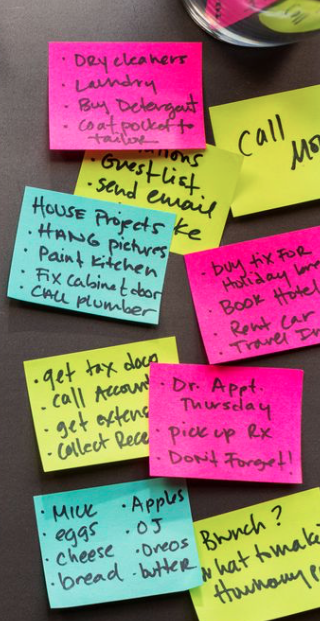 · Dry cleaners
· Laundry
· Buy Detergent
· coat pocket to
tailor
Call
Mo
ions
Guest list
· send email
ke
HOUSE Projects
· HANG pictures
· Paint Kitchen
· Fix Cabinet door
· CALL plumber
· buy tix FOR
Holiday
· Book Hotel
· Rent Car
· Travel In
· get tax docs
· call Account
· get extens
· Collect Rece
· Dr. Appt.
Thursday
· pick up Rx
· Don't Forget!
· MILK
· eggs
· cheese
· bread
· Apples
· OJ
· Oreos
· butter
Brunch ?
what to make